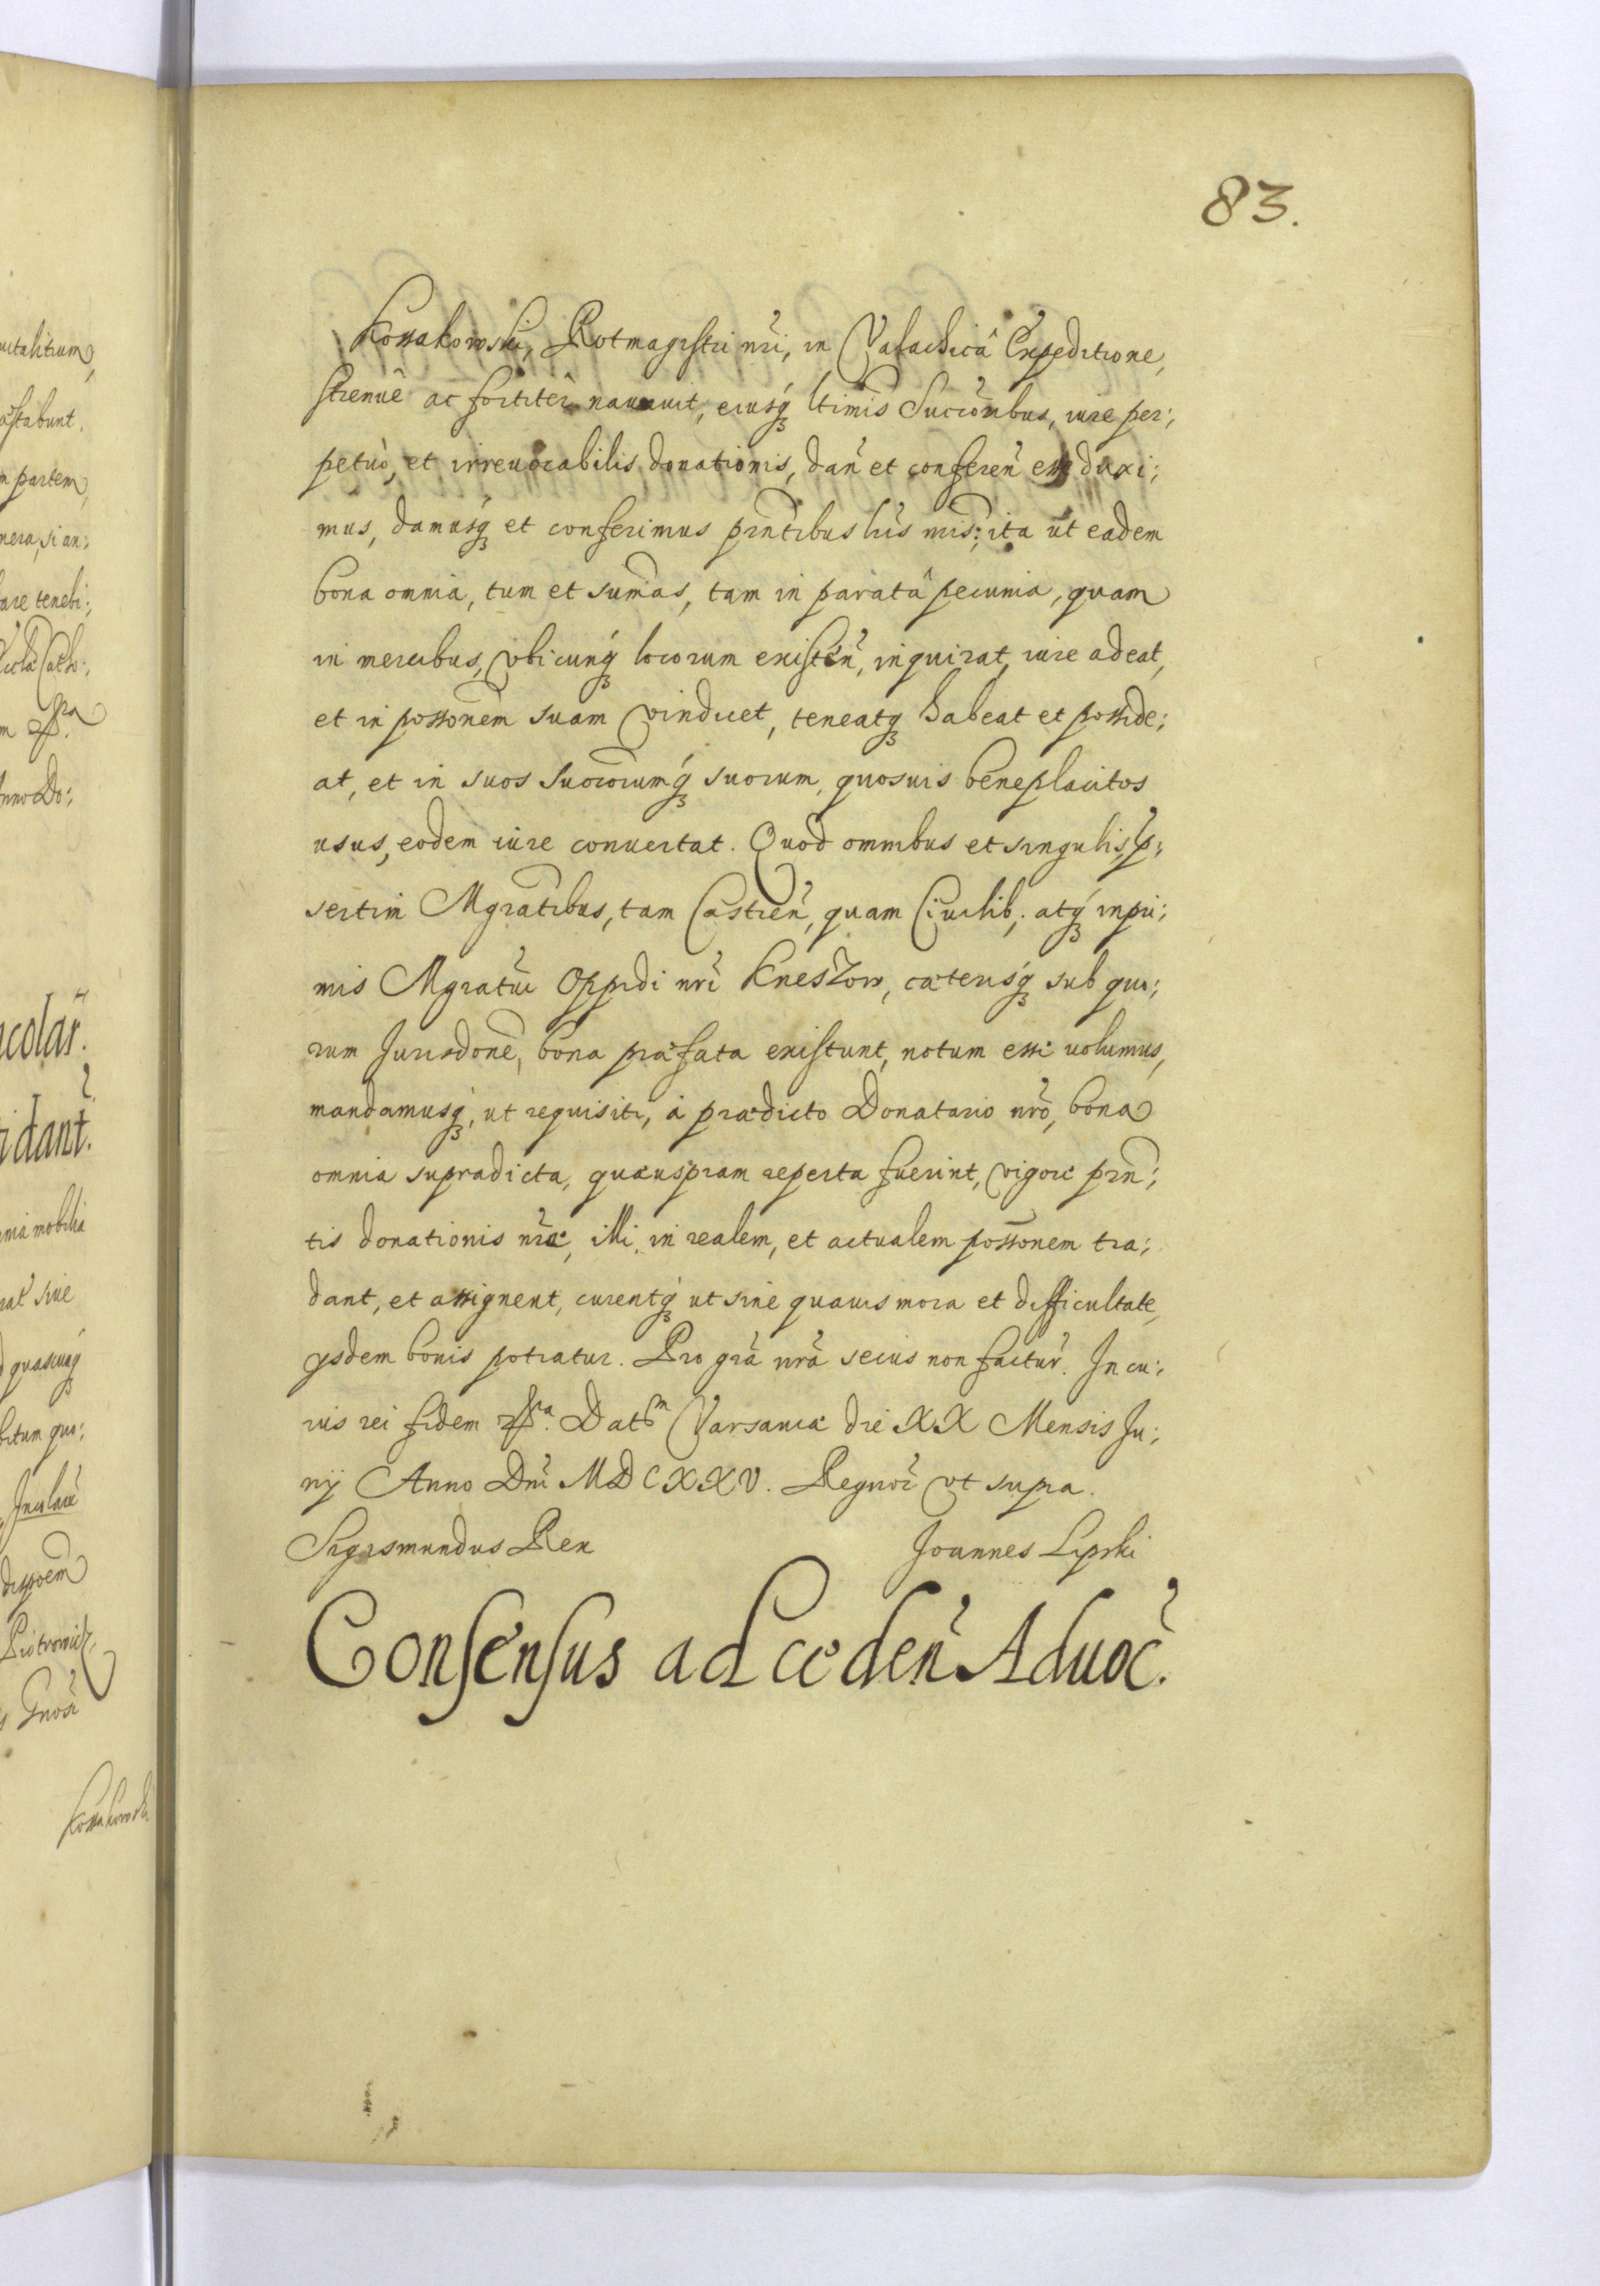 83.
Kossakowski, Rotmagistri nri, in Valachicâ Expeditione,
strenuê ac fortiter nauauit, eiusq̃ ltimis Succoribus, iure per:
petuò, et irreuocabilis donationis, dañ et confereñ esse duxi:
mus, damusq̃ et conferimus pñtibus lris nris: ita ut eadem
bona omnia, tum et sumas, tam in paratâ pecunia, quam
in mercibus, vbicunq̃ locorum existeñ, inquirat, iure adeat,
et in possonem suam vindicet, teneatq̃ habeat et posside:
at, et in suos Succorumq̃ suorum, quosuis beneplacitos
usus, eodem iure conuertat. Quod omnibus et singulis, p:
sertim Mgratibus, tam Castreñ, quam Ciuilib; atq̃ inpri:
mis Mgratui Oppidi nri Kneszow, cæterisq̃ sub quo:
rum Jurisdone, bona præfata existunt, notum esse uolumus,
mandamusq̃, ut requisiti, à prædicto Donatario nrõ, bona
omnia supradicta, quæuispiam reperta fuerint, vigore prñ:
tis donationis nræ, illi, in realem, et actualem possonem tra:
dant, et assignent, curentq̃ ut sine quauis mora et difficultate,
ysdem bonis potiatur. Pro grã nrã secus non factur. In cu:
ius rei fidem Dat Varsauiæ die XX Mensis Ju:
nij Anno Dni MDCXXV. Regnor vt supra.
Sigismundus Rex Joannes Lipski
Consensus ad cedeñ Aduoc.